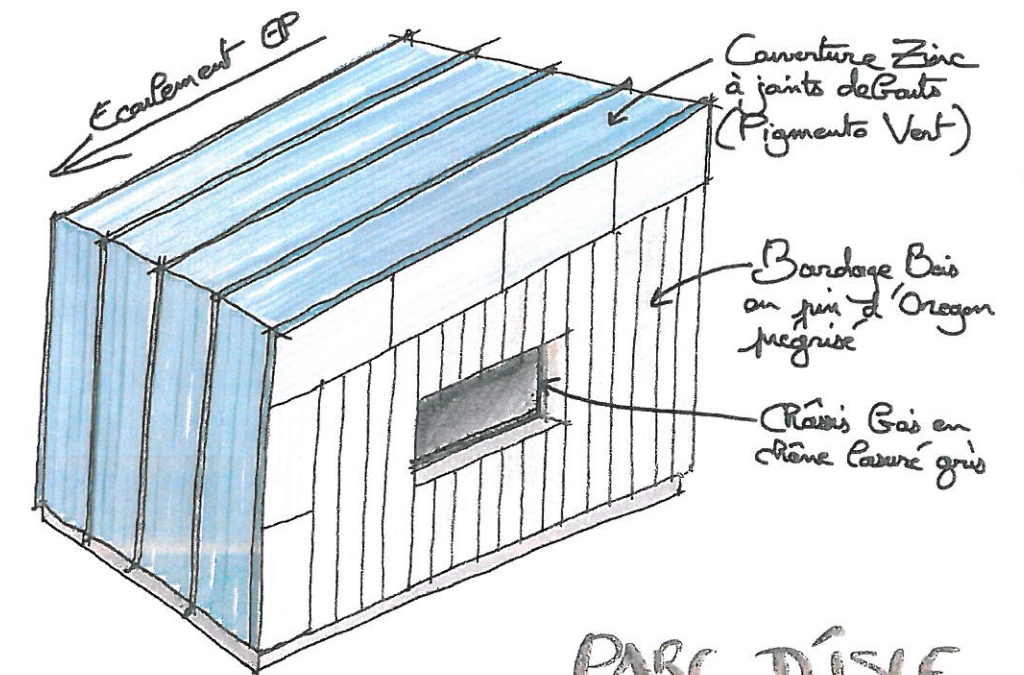 Ecoulement EP
Couverture Zinc
à joints debouts
(Pigmento Vert)
Bardage Bois
en pin d'Oregon
prégrisé
Châssis bois en
chêne lasuré gris
PARC D'ISLE